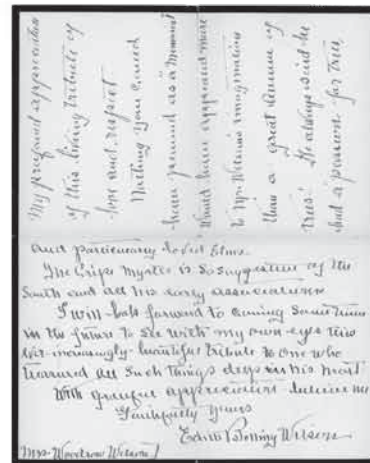 My profound appreciation
of this living tribute of
love and respect.
Nothing you could
have planned as a Memorial
would have appealed more
to Mr. Wilson's imagination
than a great avenue of
trees! He always said he
had a passion for trees
and particularly loved Elms.
The Crêpe Myrtle is so suggestive of the
South and all his early associations
I will look forward to coming sometime
in the future to see with my own eyes this
ever-increasingly-beautiful tribute to one who
treasured all such things deep in his heart
With grateful appreciation believe me
Faithfully yours
Edith Bolling Wilson
Mrs. Woodrow Wilson